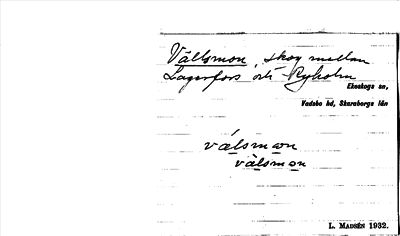 Vällsmon, skog mellan
Lagerfors och Ryholm
Ekeskogs sn,
Vadsbo hd, Skaraborgs län
välsmon
välsmon
L. MADSÉN 1932.